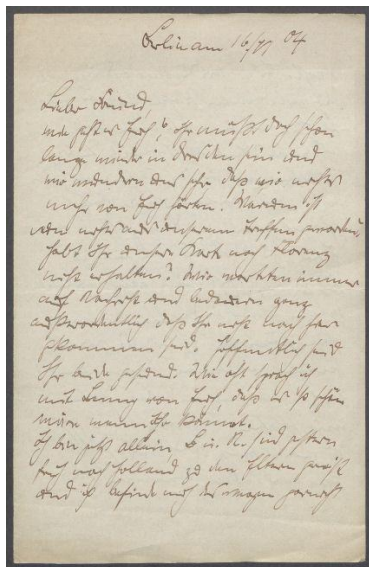 Berlin am 16/VI 04
Lieber Freund,
wie geht es Euch? Ihr müßt doch schon
lange wieder in Dresden sein und
wir wundern uns sehr daß wir nichts
mehr von Euch hörten. Warum ist
denn nichts aus unserem Treffen geworden,
habt Ihr unsere Karte nach Florenz
nicht erhalten? Wir warteten immer
auf Nachricht und bedauern ganz
außerordentlich daß Ihr nicht nach hier
gekommen seid. Hoffentlich seid
Ihr beide gesund. Wie oft sprach ich
mit von Euch, daß es so schön
wäre wenn Ihr kämet.
Ich bin jetzt allein, sind gestern
früh nach Holland zu den Eltern gereist
und ich befinde mich deswegen garnicht